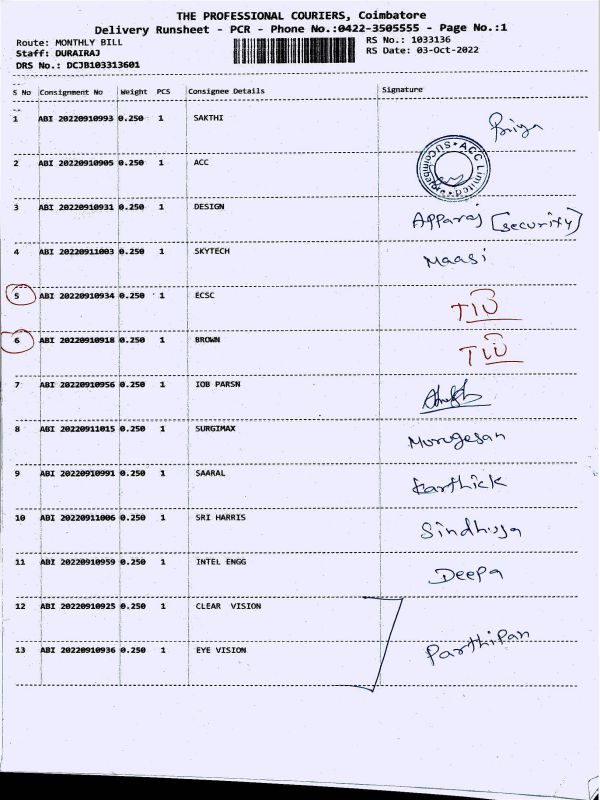 THE PROFESSIONAL COURIERS, Coimbatore
Delivery Runsheet - PCR - Phone No.:0422-3505555 - Page No.:1
Route: MONTHLY BILL RS No.: 1033136
Staff: DURAIRAJ RS Date: 03-Oct-2022
DRS No.: DCJB103313601
S No Consignment No Weight PCS Consignee Details Signature
1 ABI 20220910993 0.250 1 SAKTHI Priya
2 ABI 20220910905 0.250 1 ACC ACC Limited
3 ABI 20220910931 0.250 1 DESIGN Apparaj [security]
4 ABI 20220911003 0.250 1 SKYTECH Maasi
5 ABI 20220910934 0.250 1 ECSC
6 ABI 20220910918 0.250 1 BROWN
7 ABI 20220910956 0.250 1 IOB PARSN
8 ABI 20220911015 0.250 1 SURGIMAX Murugesan
9 ABI 20220910991 0.250 1 SAARAL Karthick
10 ABI 20220911006 0.250 1 SRI HARRIS Sindhuja
11 ABI 20220910959 0.250 1 INTEL ENGG Deepa
12 ABI 20220910925 0.250 1 CLEAR VISION
13 ABI 20220910936 0.250 1 EYE VISION Parthipan